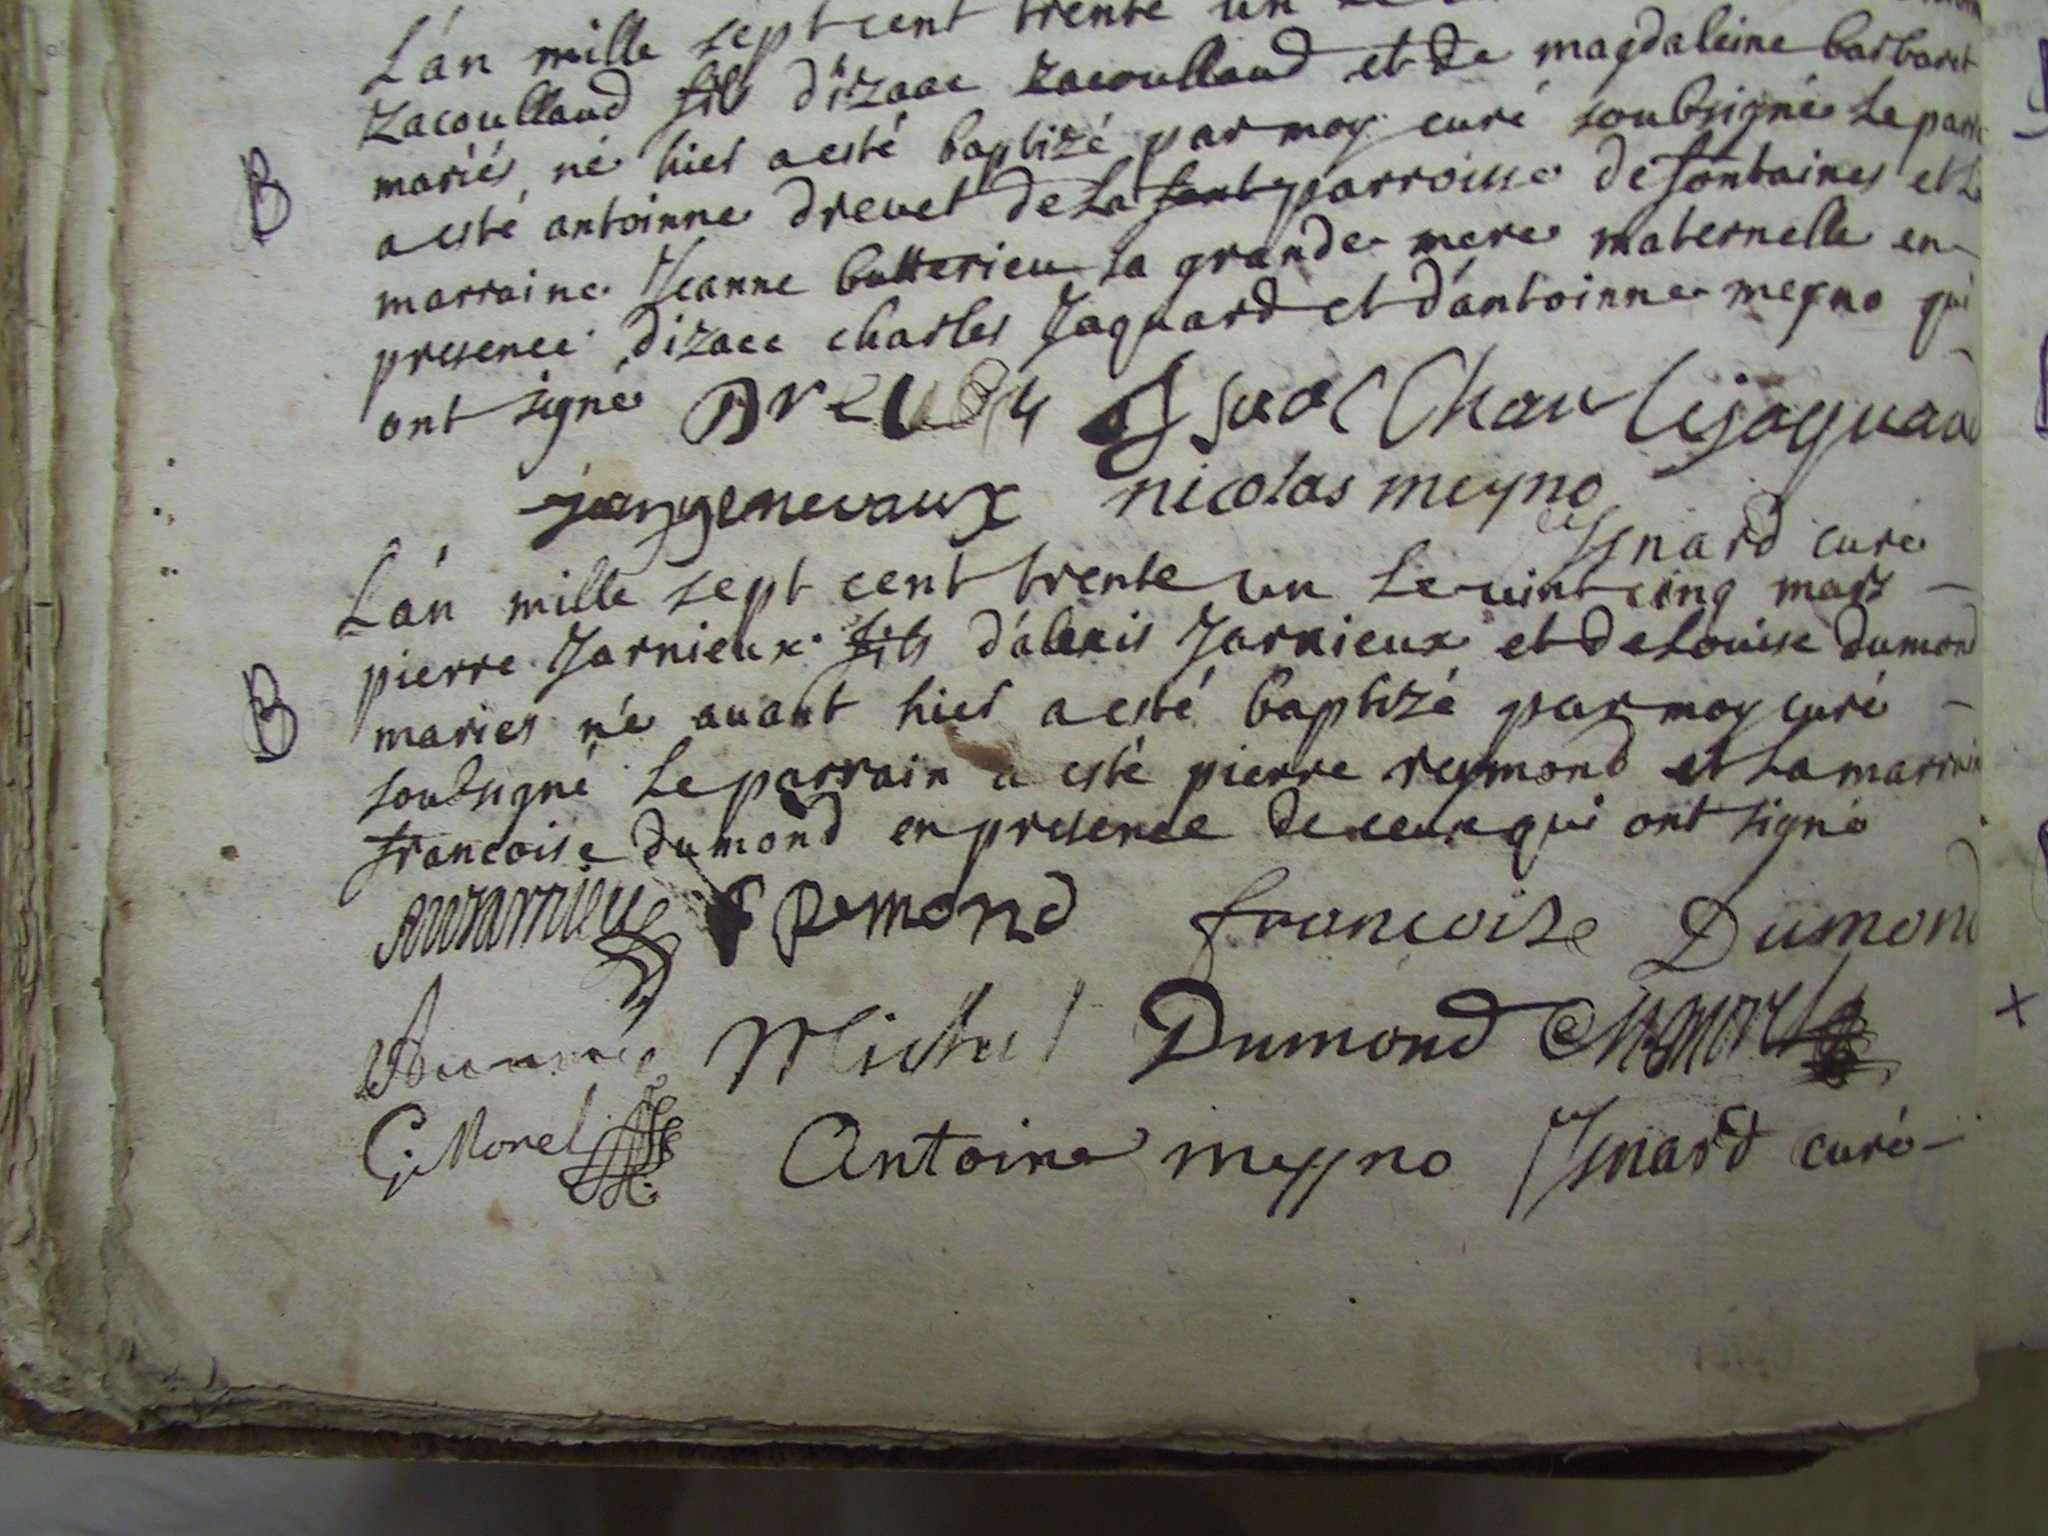 L'an mille sept cent trente un
Zacoullaud fils d'izaac Zacoullaud et de magdaleine barbaret
mariés né hier a esté baptizé par moy curé soubsigné Le parr
a esté antoinne drevet de La parroisse de fontaines et La
marraine Jeanne butterieu La grande mere maternelle en
presence d'izaac charles Jaquard et d'antoinne meyno qui
ont signé Drevet Isaac Charlejaquard
jeangenevaux nicolas meyno
Isnard curé
L'an mille sept cent trente un Le vint cinq mars
pierre Jarnieux fils d'alexis Jarnieux et de Louise dumond
maries né avant hier a esté baptizé par moy curé
soubsigné Le parrain a esté pierre reymond et La marrain
francoise dumond en presence de ceux qui ont signé
Remond francoise Dumond
Michel Dumond
G. Morel Antoine meyno Isnard curé
B
B